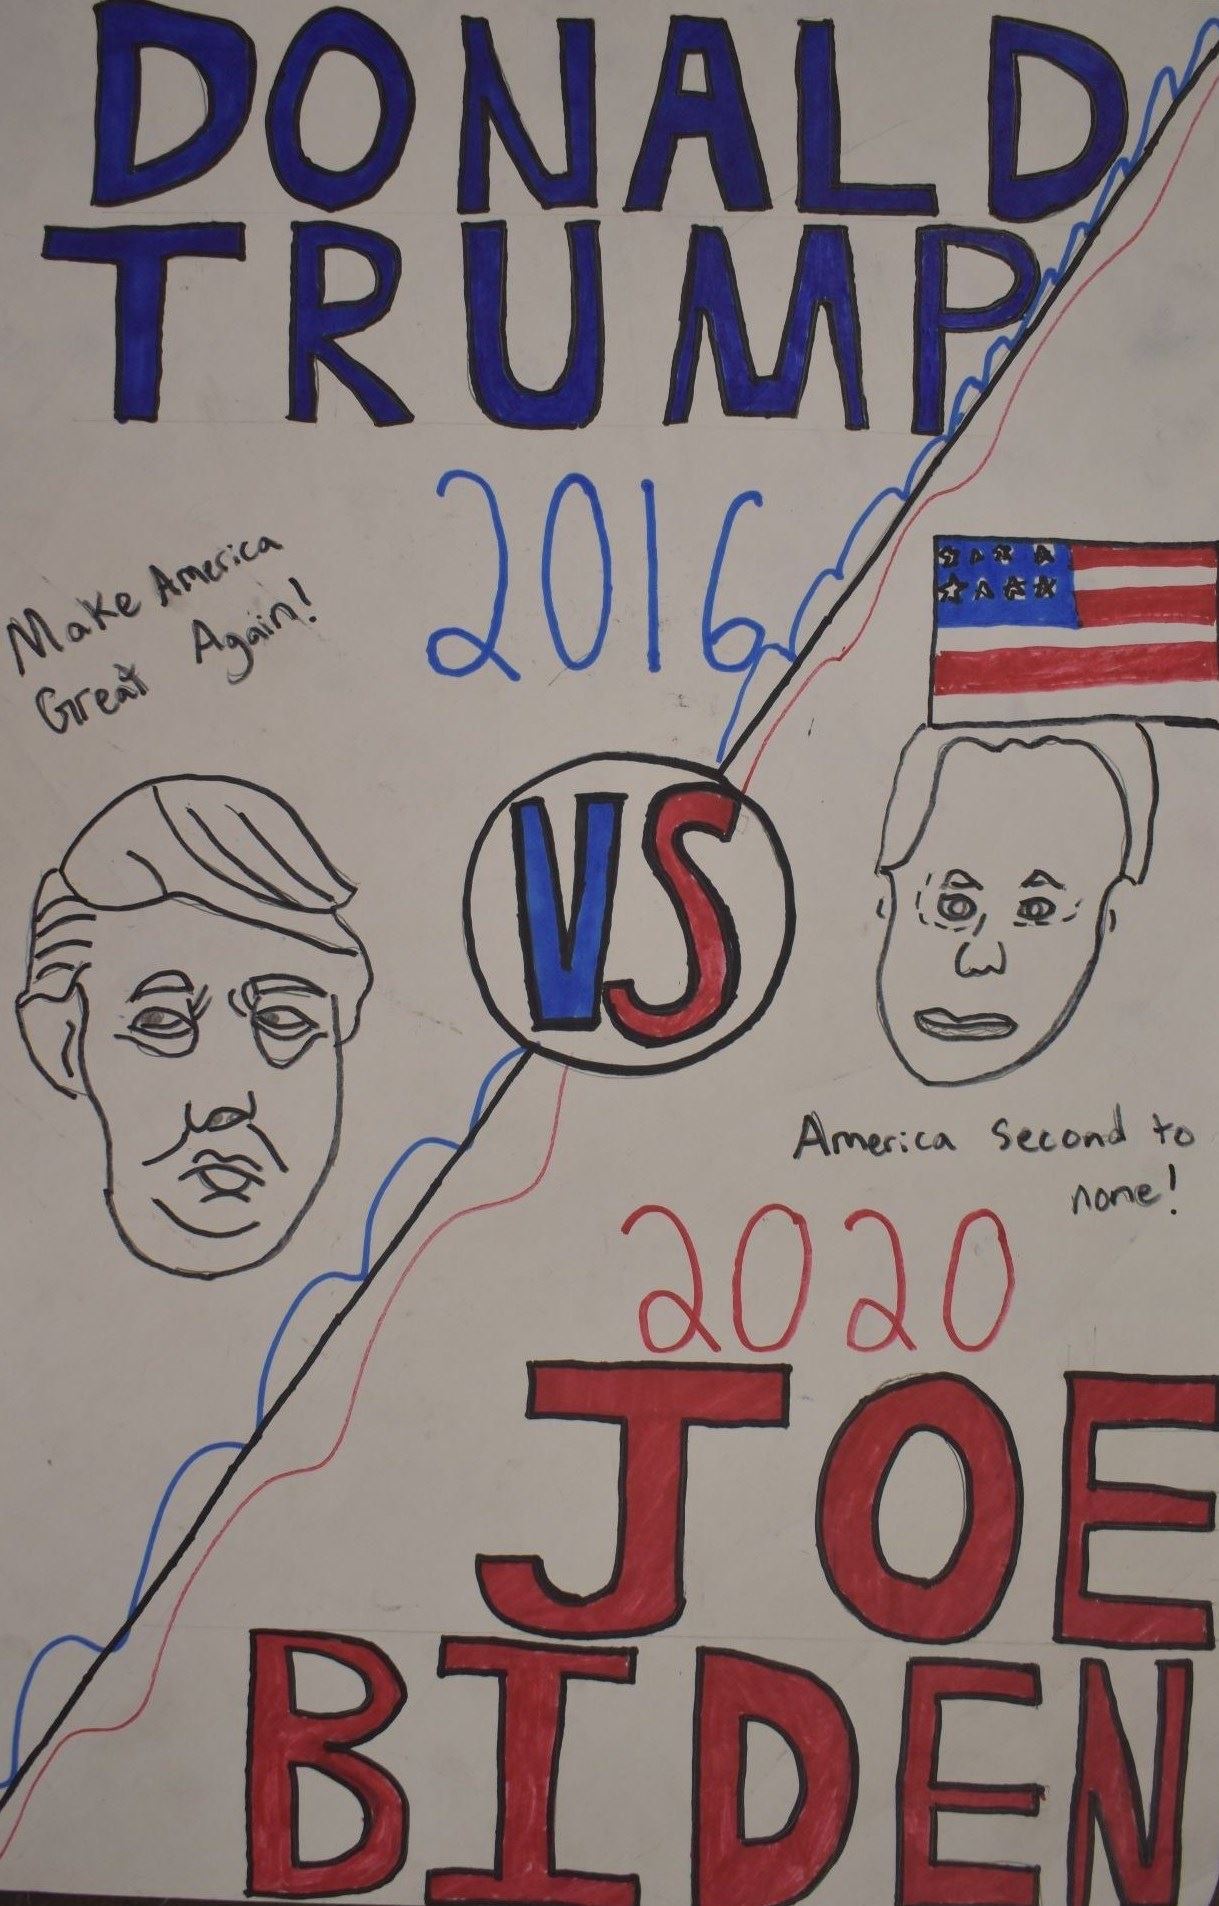 DONALD
TRUMP
2016
Make America
Great Again!
VS
America second to
none!
2020
JOE
BIDEN